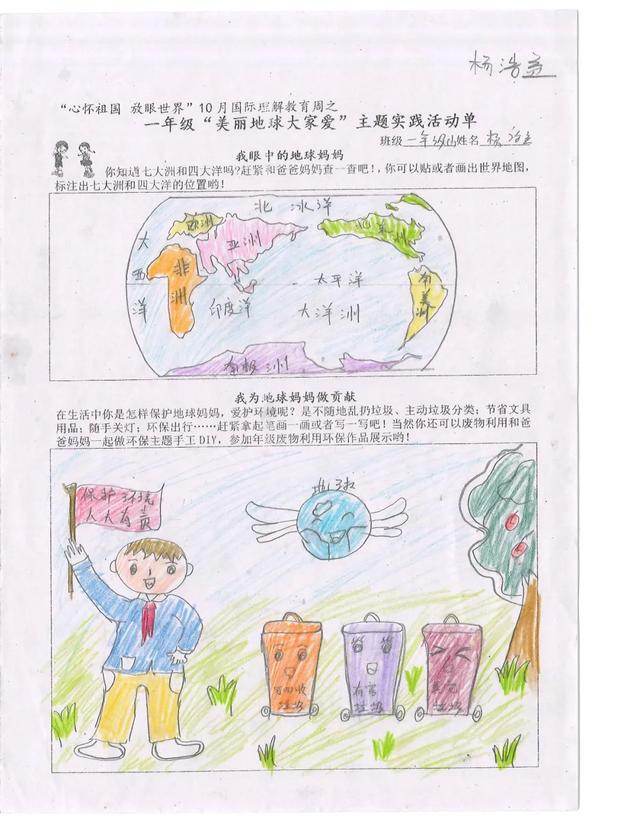 杨浩
“心怀祖国 放眼世界”10月国际理解教育周之
一年级“美丽地球大家爱”主题实践活动单
班级一年级 姓名 杨浩
我眼中的地球妈妈
你知道七大洲和四大洋吗?赶紧和爸爸妈妈查一查吧!,你可以贴或者画出世界地图,
标注出七大洲和四大洋的位置哟!
北冰洋
欧洲
亚洲
北美洲
大西洋
非洲
太平洋
南美洲
印度洋
大洋洲
南极洲
我为地球妈妈做贡献
在生活中你是怎样保护地球妈妈,爱护环境呢?是不随地乱扔垃圾、主动垃圾分类;节省文具
用品;随手关灯;环保出行……赶紧拿起笔画一画或者写一写吧!当然你还可以废物利用和爸
爸妈妈一起做环保主题手工DIY,参加年级废物利用环保作品展示哟!
保护环境
人人有责
地球
可回收
垃圾
有害
垃圾
垃圾